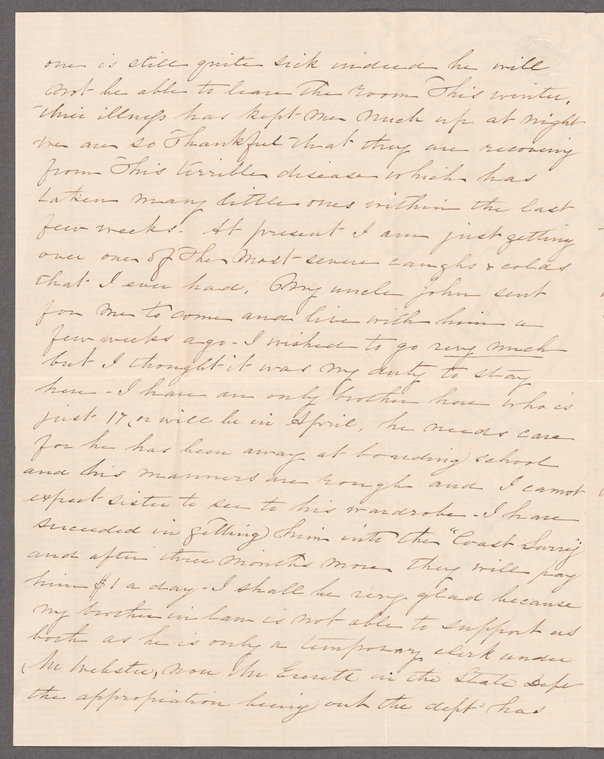 one is still quite sick indeed he will
not be able to leave the room This winter.
their illness has kept me much up at night
we are so Thankful that they are recovering
from This terrible disease which has
taken many little ones within the last
few weeks. At present I am just getting
over one of The most severe coughs & colds
that I ever had. My uncle John sent
for me to come and live with him a
few weeks ago - I wished to go very much
but I thought it was my duty to stay
here - I have an only brother here who is
just 17, or will be in April, he needs care
for he has been away at boarding school
and his manners are rough and I cannot
expect sister to see to his wardrobe - I have
succeeded in getting him into the "Coast Survey
and after three months more they will pay
him $1 a day - I shall be very glad because
my brother in law is not able to support us
both as he is only a temporary clerk under
Mr Webster, now Mr Everett in the State Dept
the appropriation being out the dept has